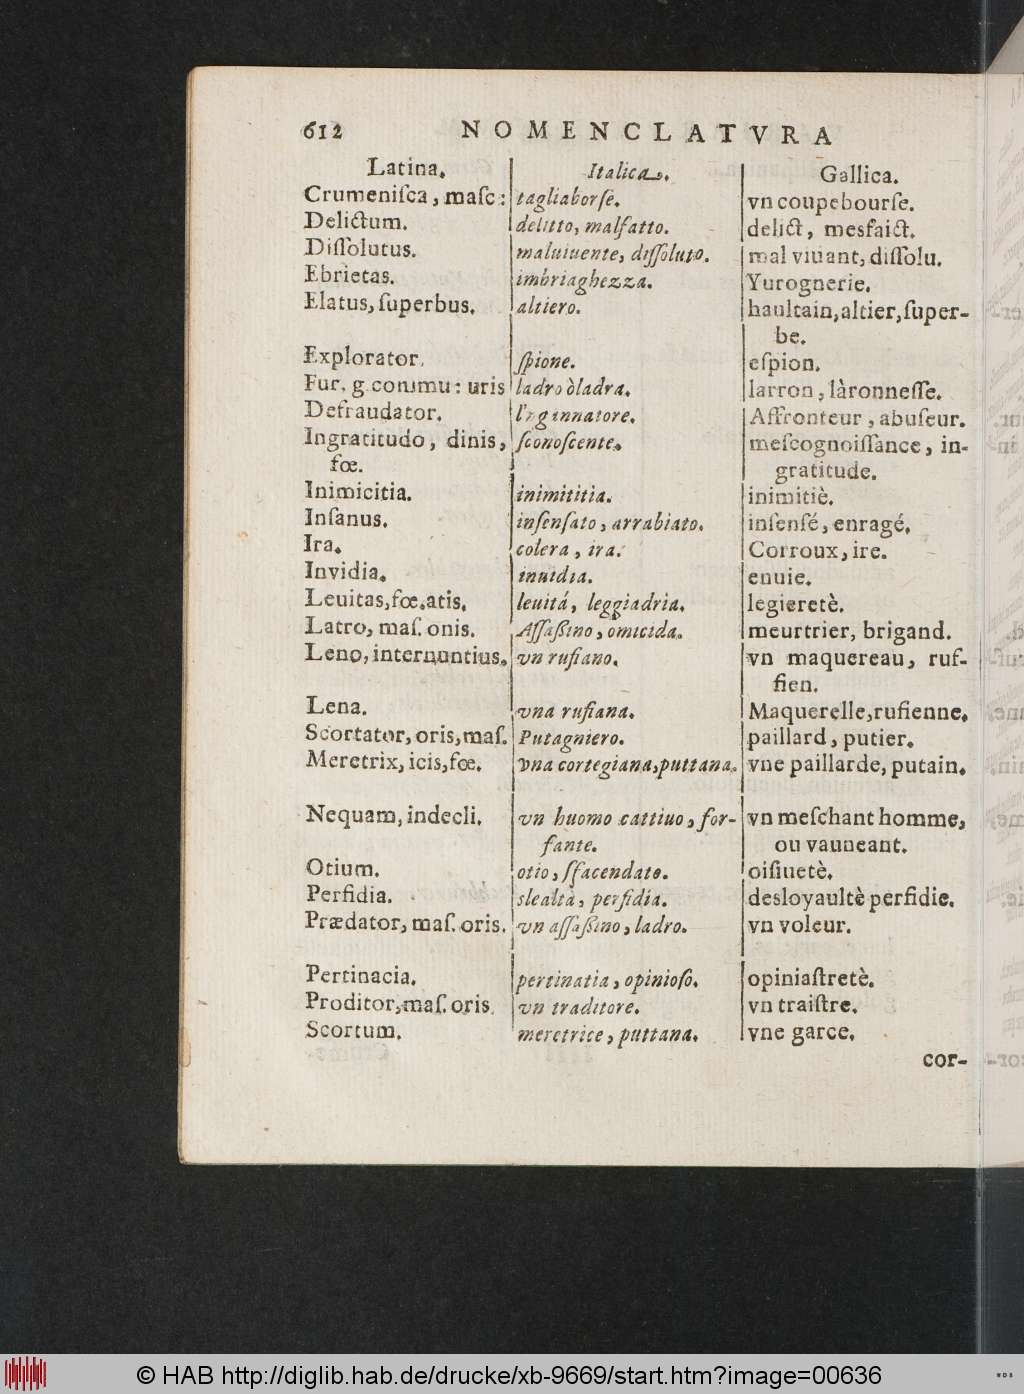 612 NOMENCLATVRA
Latina. Italica. Gallica.
Crumeniſca, maſc: tagliaborſe. vn coupebourſe.
Delictum. delitto, malfatto. delict, mesfaict.
Diſſolutus. maluiuente, diſſoluto. mal viuant, diſſolu.
Ebrietas. imbriaghezza. Yurognerie.
Elatus, ſuperbus. altiero. haultain, altier, ſuper-
be.
Explorator. ſpione. eſpion.
Fur. g. commu: uris ladro òladra. larron, làronneſſe.
Defraudator. Affronteur, abuſeur.
Ingratitudo, dinis, ſconoſcente. meſcognoiſſance, in-
fœ. gratitude.
Inimicitia. inimititia. inimitiè.
Inſanus. inſenſato, arrabiato. inſenſé, enragé.
Ira. colera, ira. Corroux, ire.
Invidia. inuidia. enuie.
Leuitas, fœ. atis. leuitá, leggiadria. legieretè.
Latro, maſ. onis. Aſſaßino, omicida. meurtrier, brigand.
Leno, internuntius. vn rufiano. vn maquereau, ruf-
fien.
Lena. vna rufiana. Maquerelle, rufienne.
Scortator, oris, maſ. Putagniero. paillard, putier.
Meretrix, icis, fœ. vna cortegiana, puttana. vne paillarde, putain.
Nequam, indecli. vn huomo cattiuo, for- vn meſchant homme,
fante. ou vauneant.
Otium. otio, ſfacendato. oiſiuetè.
Perfidia. slealtà, perfidia. desloyaultè perfidie.
Prædator, maſ. oris. vn aſſaßino, ladro. vn voleur.
Pertinacia. pertinatia, opinioſo. opiniaſtretè.
Proditor, maſ. oris. vn traditore. vn traiſtre.
Scortum. meretrice, puttana. vne garce.
cor-
© HAB http://diglib.hab.de/drucke/xb-9669/start.htm?image=00636